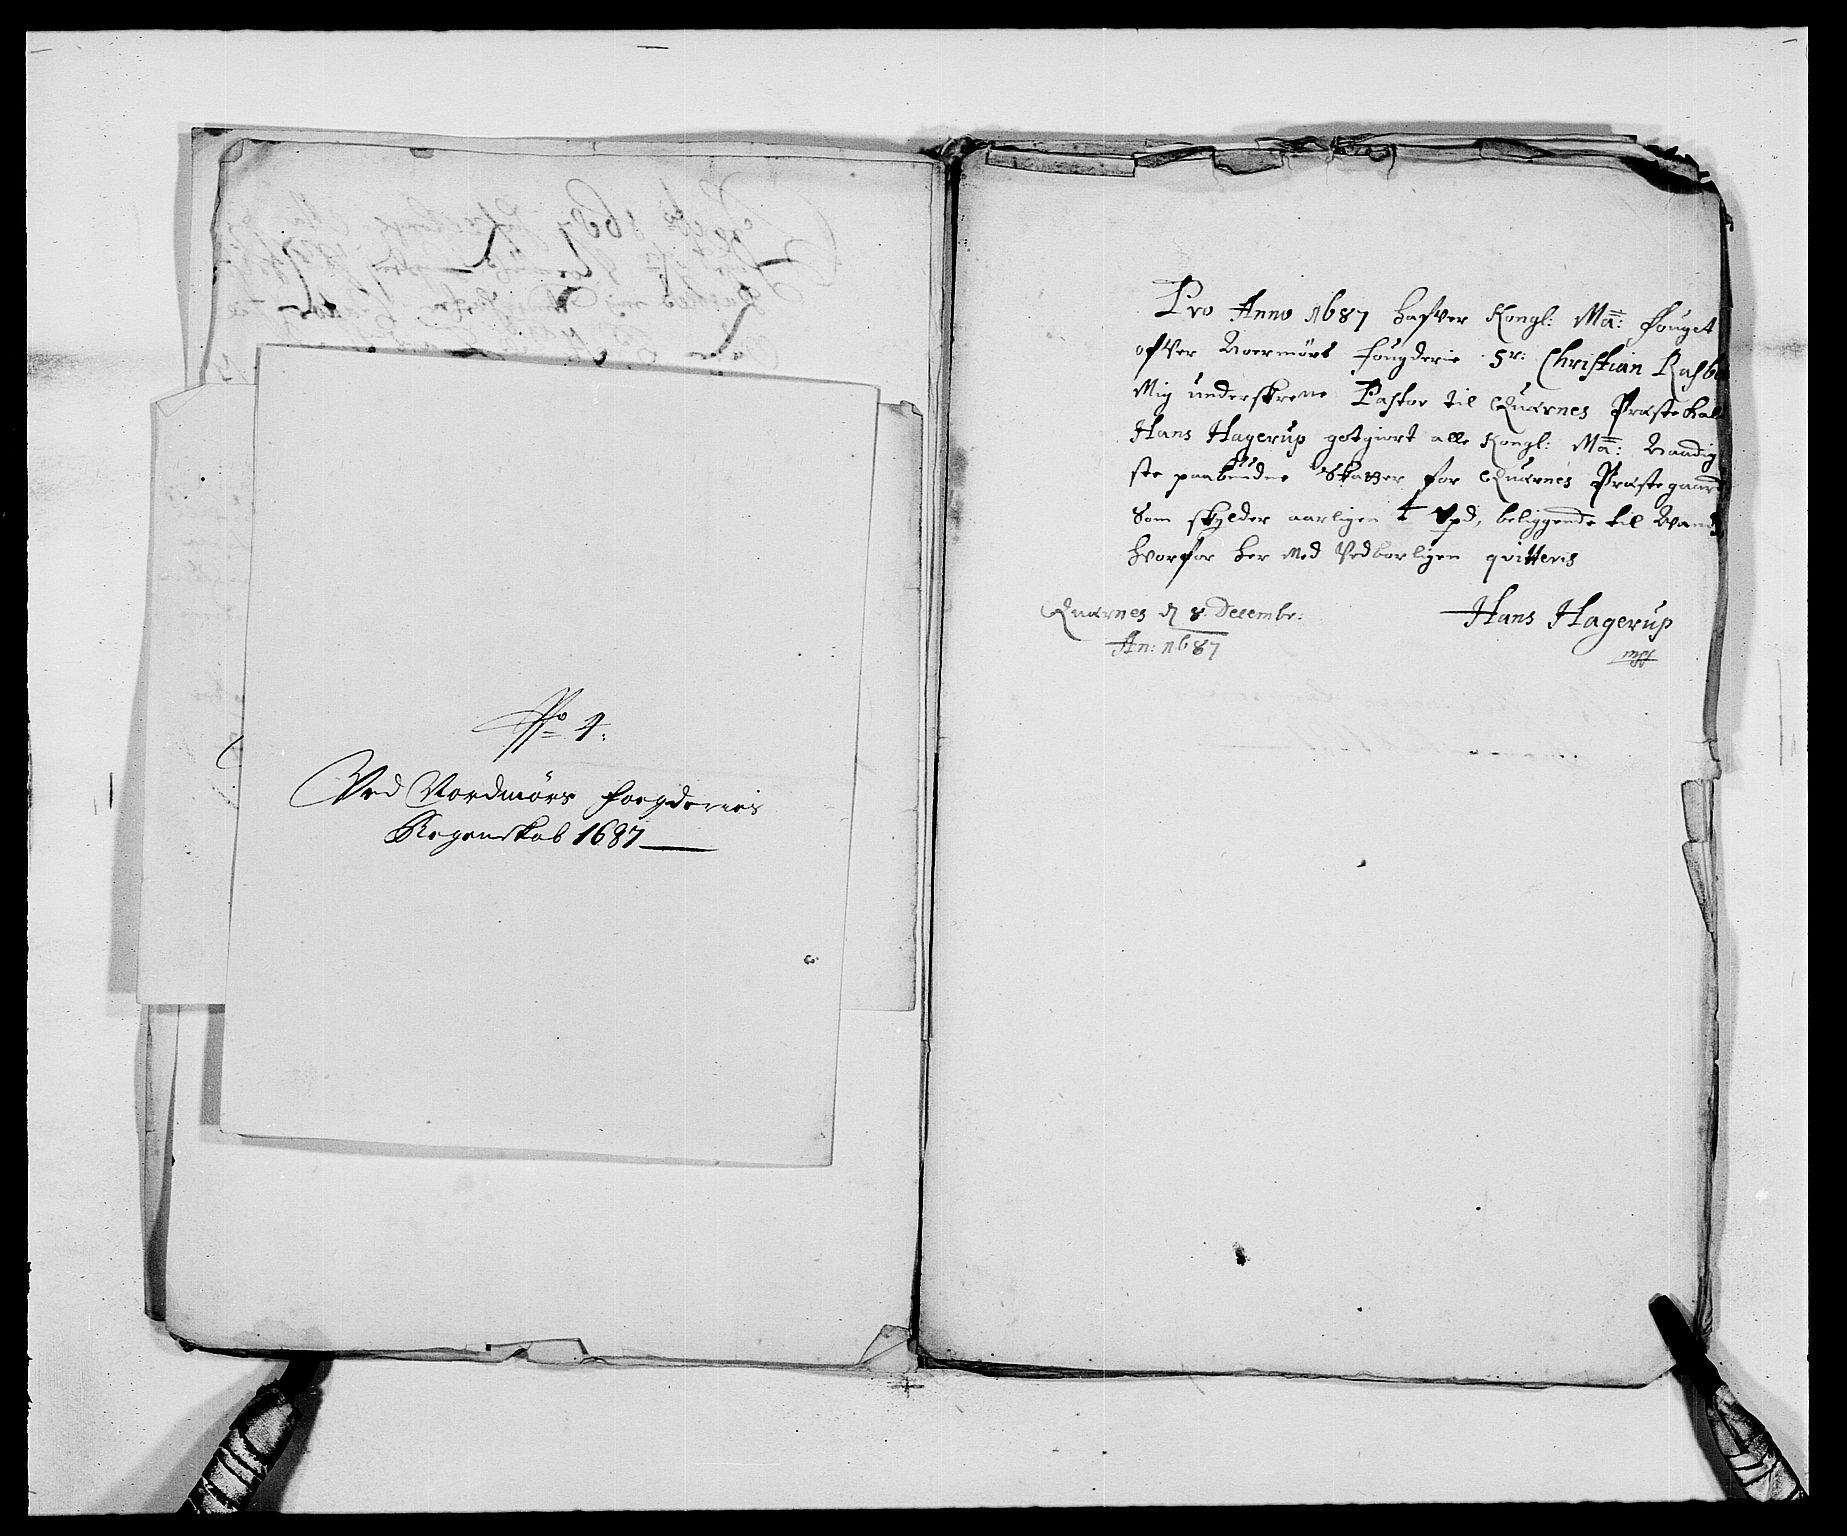 No 4.
Ved Nordmørs fogderies
Regenskab 1687
Pro Anno 1687 hafver Kongl: Ma: fouget
ofver Noermørs fougderie Sr: Christian Rasb
Mig underskrevne Pastor til Quærnes Præstekal
Hans Hagerup gotgiort alle Kongl: Ma: Naadig
ste paabudne Skatter for Quærnes Præstegaard
Som skylder aarligen 4 vpd, beliggende til
hvorfor her med Vedborligen qvitteris
Quærnes d 8 Decembr:
An: 1687
Hans Hagerup
mpp